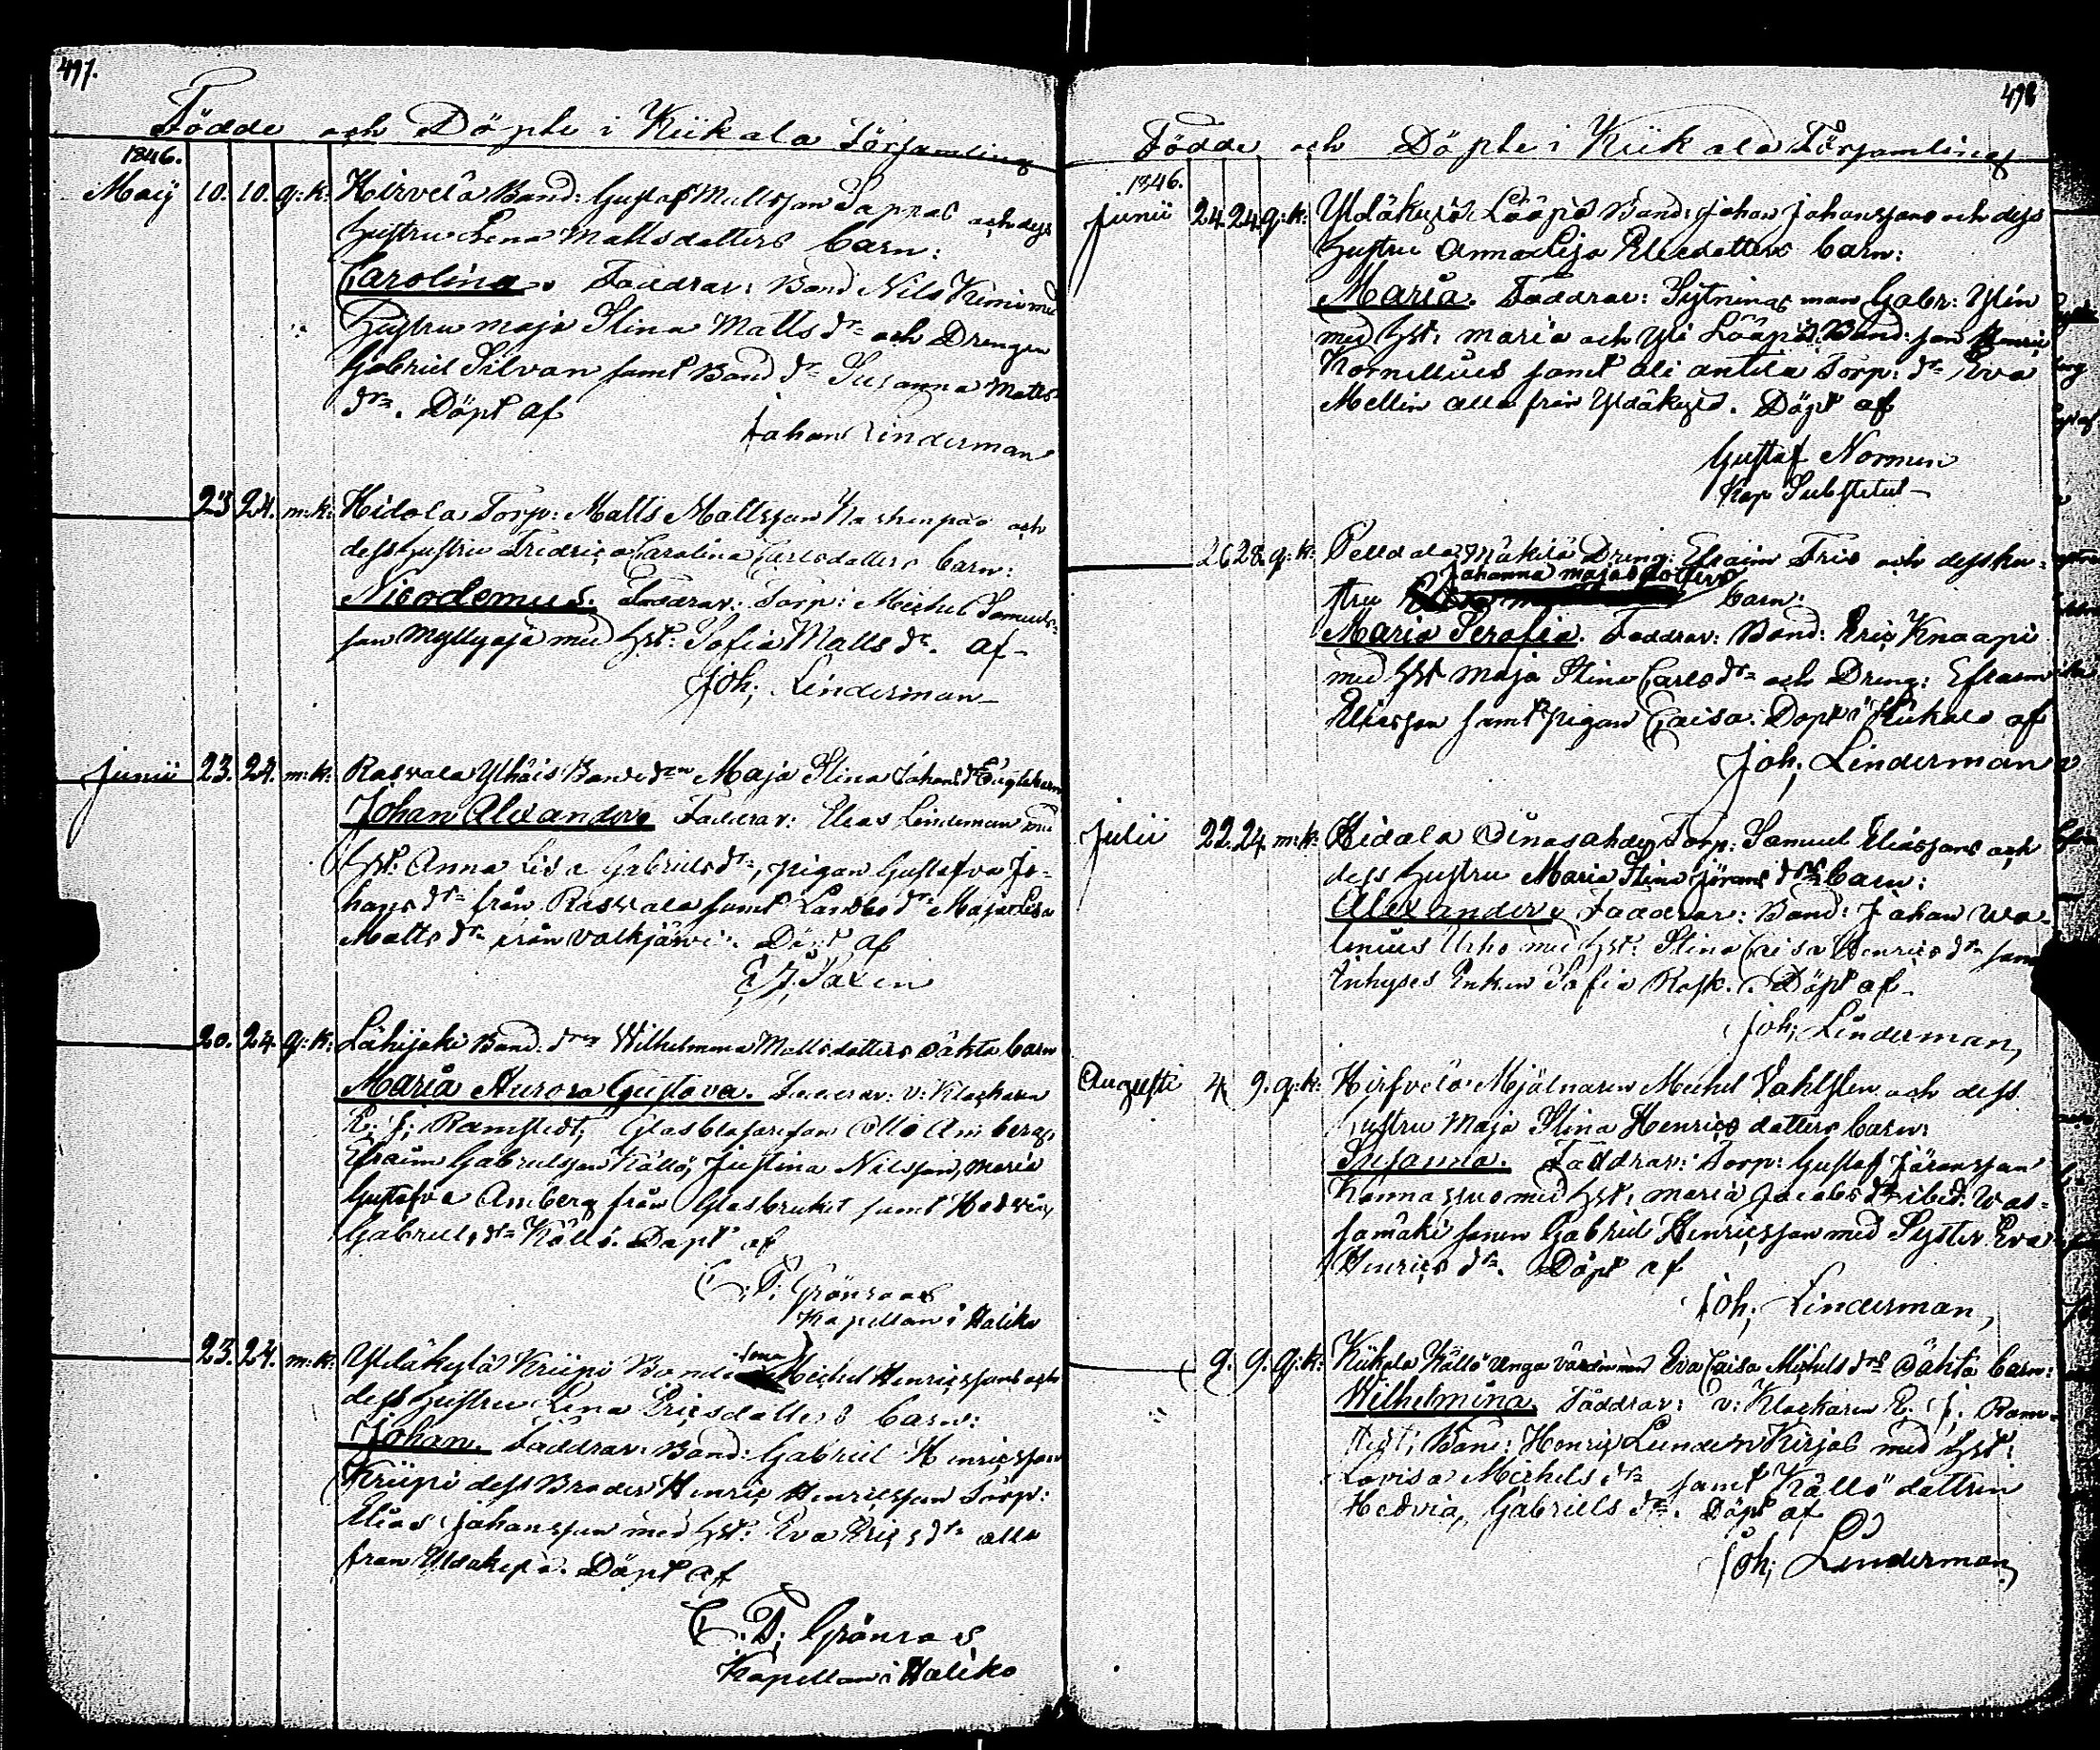 497.
Födde och Döpte i Kiikala Församling
1846.
Maij 10. 10. q: k: Hirvelä Bond: Gustaf Mattsson Sappas och dess
hustru Lena Mattsdotters barn:
Carolina. Faddrar: Bond Nils Kumi med
hustru Maja Stina Matts dr och Drengen
Gabriel Silvan samt Bond dr Susanna Matts
dr. Döpt af
Johan Linderman
23 24. m: k: Hidola Torp: Matts Mattsson och
dess hustru Fredrica Carolina Carlsdotters barn:
Nicodemus. Faddrar: Torp: Michel Samuels-
son Myllyoja med hst: Sofia Matts dr. af
Joh; Linderman
Junii 23. 24. m: k: Rasvala Ylhäis Bonde drn Maja Stina Johans dr barn
Johan Alexander Faddrar: Elias Lindeman med
hst: Anna Lisa Gabriels dr, pigan Gustafva Jo-
hans dr från Rasvala samt Landbo dr Maja Lisa
Matts dr från Valkjärvi. Döpt af
Saxen
20. 24. q: k: Lähijoki Bond: drs Wilhelmina Mattsdotters oäkta barn
Maria Aurora Gustava. Faddrar: v: Klockaren
E: J: Ramstedt; Glasblasaresan Otto Amberg,
Efraim Gabrielsson Källö, Justina Nilsson, Maria
Gustafva Amberg från Glasbruket samt Hedvig
Gabriels dr Källö. Döpt af
C: T: Grönroos
Kapellan i Haliko
23. 24. m: k: Yltäkylä Kriipi Bonde sonen Michel Henricssons och
dess hustru Lena Ericsdotters barn:
Johan. Faddrar: Bond: Gabriel Henricsson
Kriipi dess Broder Henric Henricsson Torp:
Elias Johansson med hst: Eva Erics dr alla
från Yldäkylä. Döpt af
C: T: Grönroos
Kapellan i Haliko
498
Födde och Döpte i Kiikala Församling
1846.
Junii 24. 24. q: k: Yldäkylä Lääpis Bond: Johan Johanssons och dess
hustru Anna Lisa Ericsdotters barn:
Maria. Faddrar: Sytnings man Gabr: Ylin
med hst: Maria och Yli Lääpis Bond: son Henric
Kornelius samt Ali Antila Torp: dr Eva
Mellin alla från Yldäkylä. Döpt af
Gustaf Normen
Kap Substitut
26 28. q: k: Mäkilä Dreng: Efraim Fris och dess hu-
Johanna Majas dotters
stru barn:
Maria Serafia. Faddrar: Bond: Eric Knaapi
med hst Maja Stina Carls dr och Dreng: Efraim
Eliasson samt pigan Caisa. Döpt i Kiikala af
Joh; Linderman
Julii 22. 24. m: k: Hidola Torp: Samuel Eliassons och
dess hustru Maria Stina Görans drs barn:
Alexander. Faddrar: Bond: Johan Wa-
lenius Urho med hst: Stina Caisa Henrics dr samt
Inhyses Enkan Sofia Rask. Döpt af
Joh; Linderman,
Augusti 4 9. q: k: Hirfvelä Mjölnaren Michel Vahlsten och dess
hustru Maja Stina Henrics dotters barn:
Susanna. Faddrar: Torp: Gustaf Göransson
Kannassuo med hst: Maria Jacobs dr ibid: Was-
samäki sonen Gabriel Henricsson med Syster Eva
Henrics dr. Döpt af
Joh; Linderman,
9. 9. q: k: Kiikala Källö unga värdinnan Eva Caisa Michels drs oäkta barn:
Wilhelmina. Faddrar: v: Klockaren E: J: Ram-
stedt; Bond: Henric Lundén Kirjas med hst:
Lovisa Michels dr samt Källö dottren
Hedvig Gabriels dr. Döpt af
Joh; Linderman,